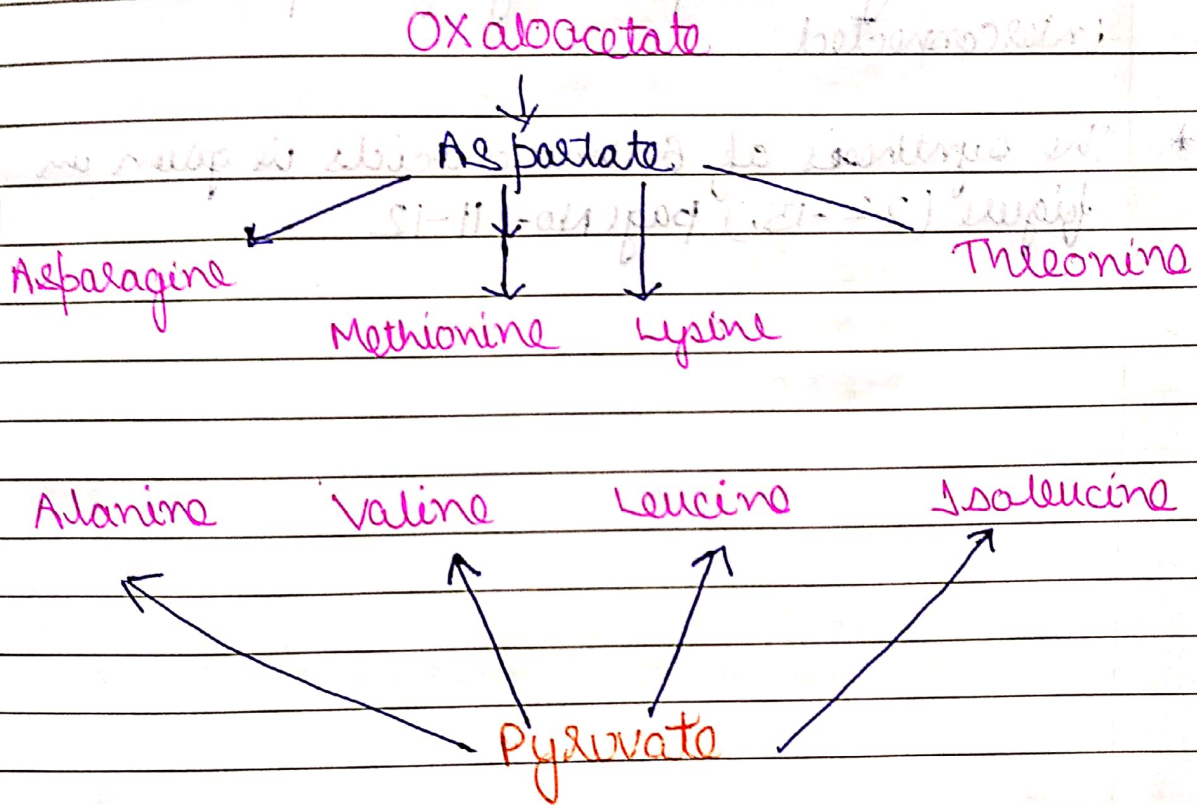 Oxaloacetate
Aspartate
Asparagine Threonine
Methionine Lysine
Alanine Valine Leucine Isoleucine
Pyruvate